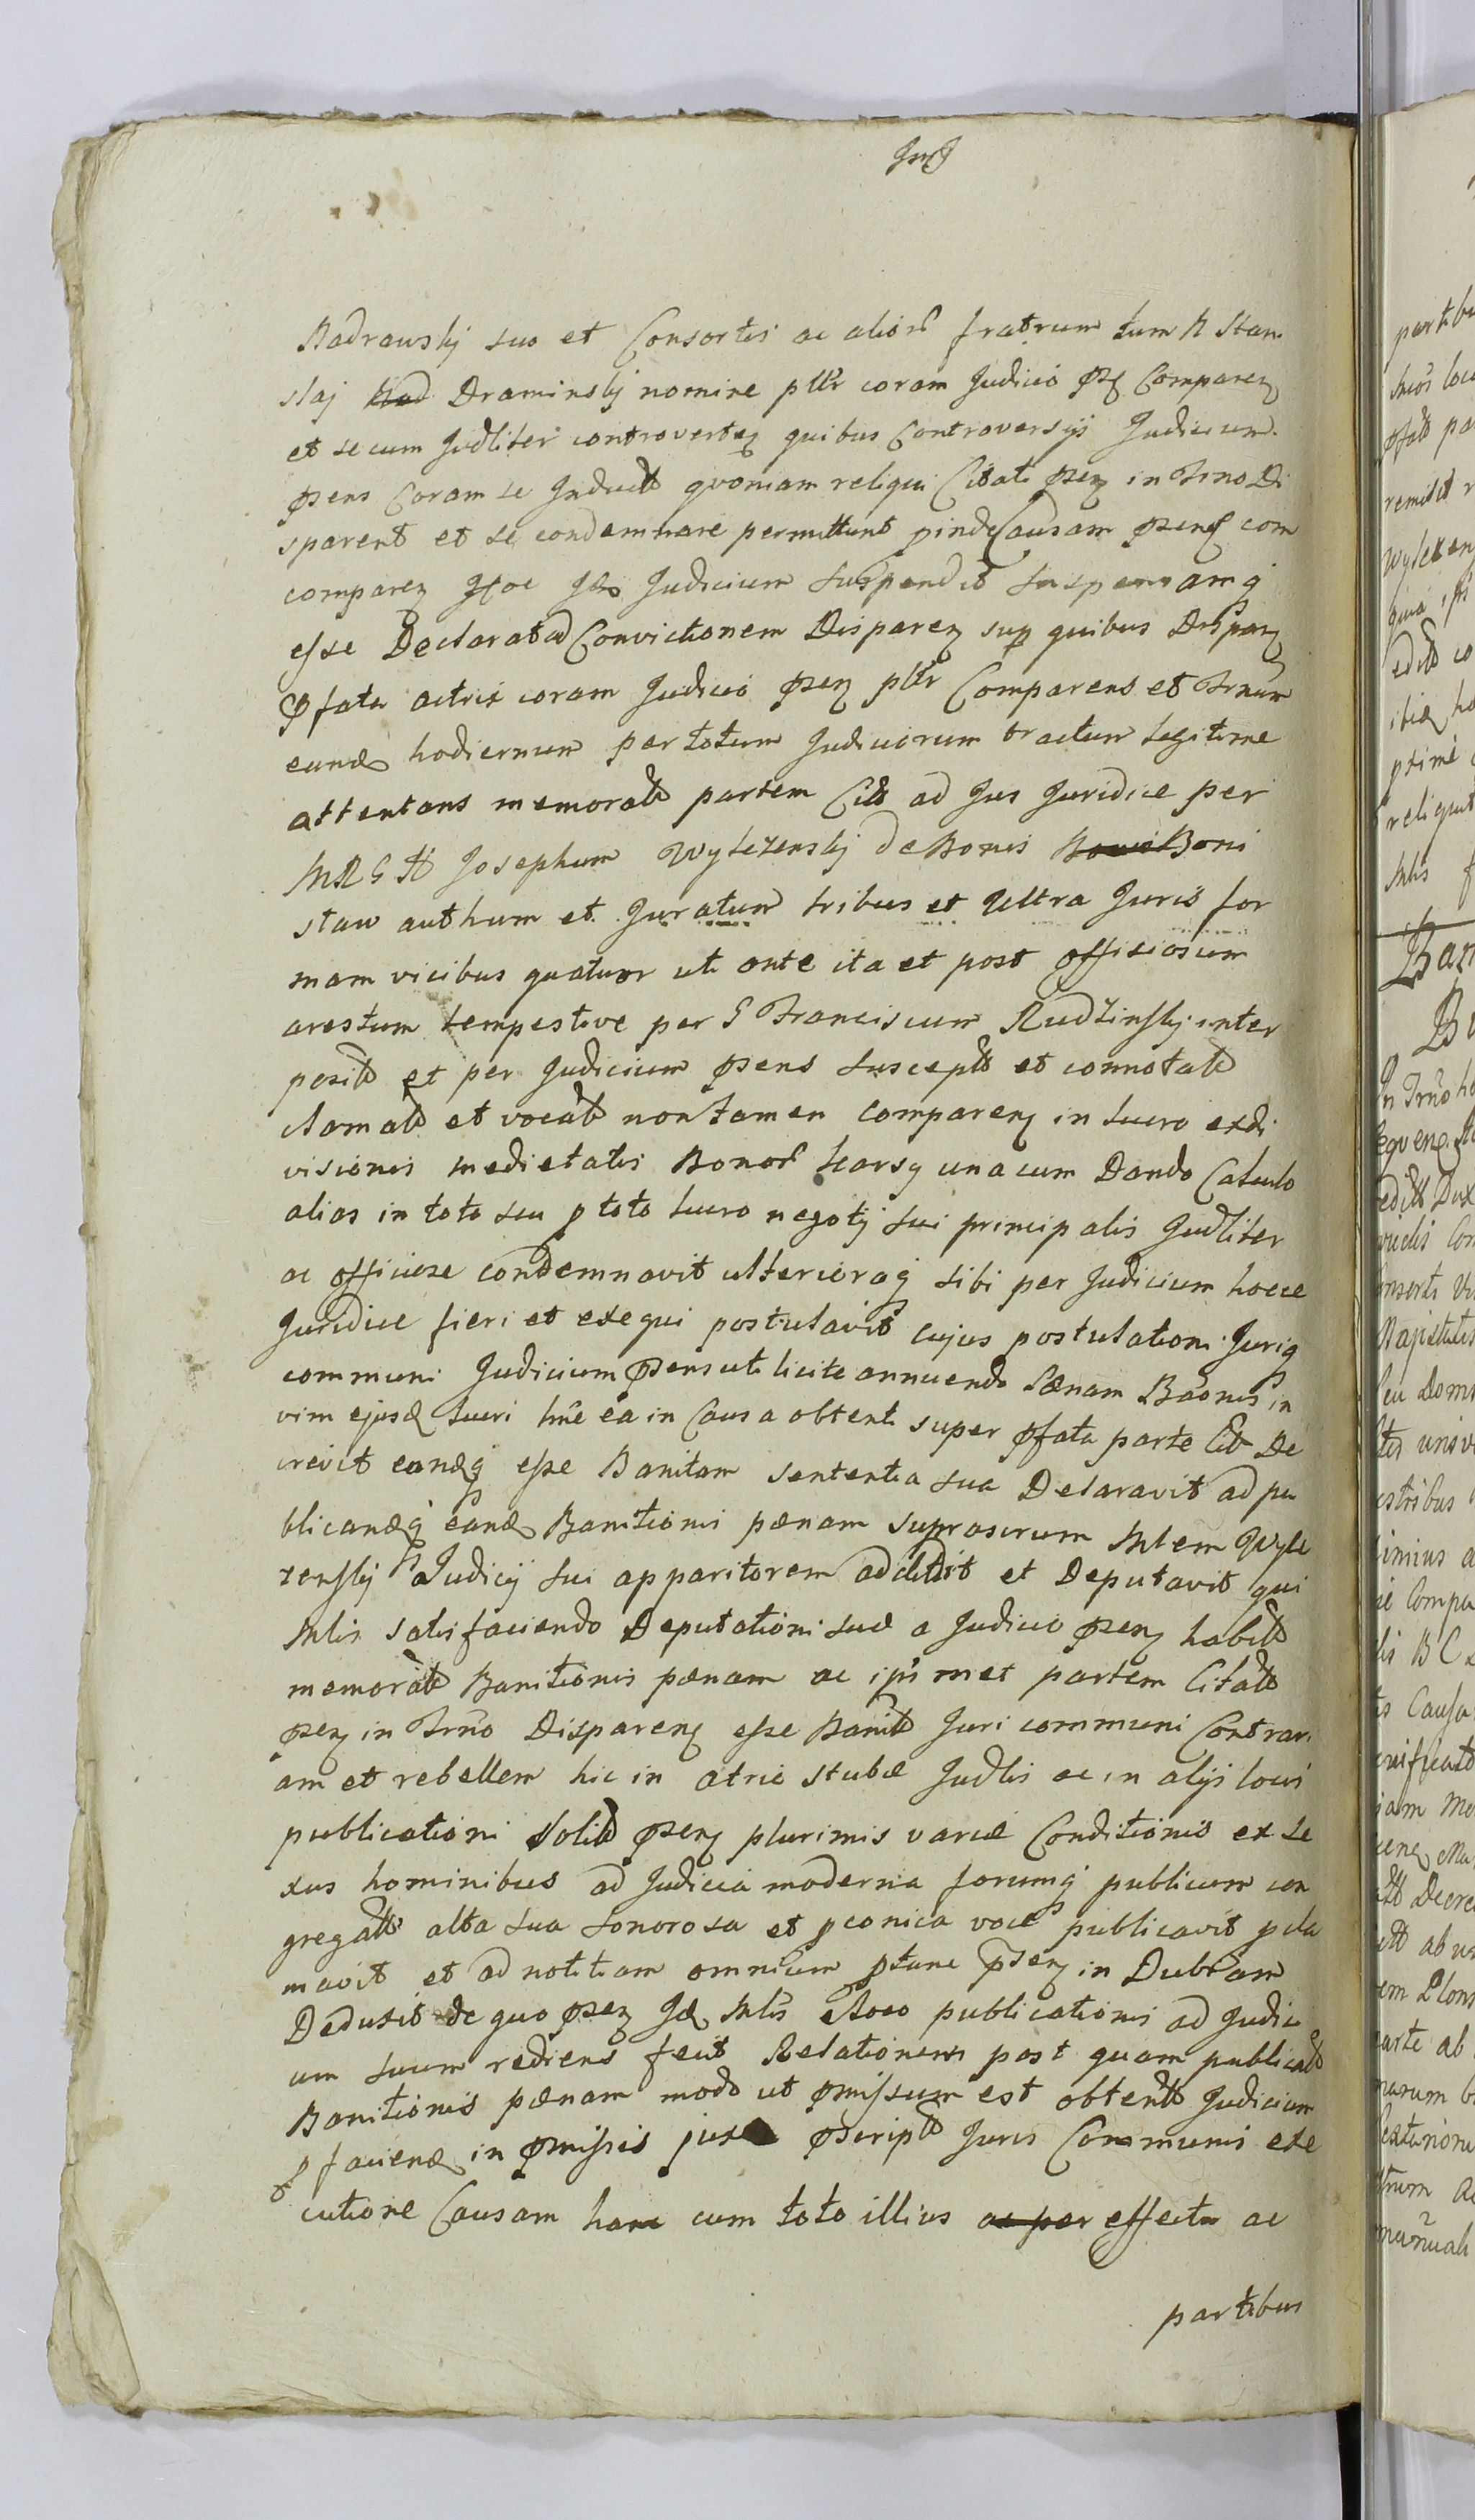 Radrauskÿ suo et Consortis ac alior fratrum tum N Stan
slaj Draminskÿ nomine pltr coram Judicio Comparen
et secum Judliter controverten quibus Controversÿs Judicium
psens Coram se Induct quoniam reliqui Citati psen in Trno Di
sparent et se condemnare permittunt pinde Causam psens com
comparen Judicium Suspendit suspensamq
esse Declarat ad Convictionem Disparen sup quibus Disparen
Pfata actrix coram Judicio psen pltr Comparens et Trnum
eund hodiernum per totum Judiciorum tractum legitime
attentans memorat partem Cit ad Jus Juridice per
Josephum Wylezenskÿ de Bonis Boni
staw authum et Juratum tribus et Ultra Juris for
mam vicibus quatuor uti ante ita et post officiosum
arestum tempestive per G Franciscum Rudzinskÿ inter
posit et per Judicium psens suscept et connotat
clamat et vocat non tamen comparen in lucro exdi
visionis medietatis Bonor Karsy una cum Dando Calculo
alias in toto seu p toto lucro negotÿ sui principalis Judliter
ac officiose condemnavit ulterioraq sibi per Judicium hocce
Juridice fieri et exequi postulavit cujus postulationi Juriq
communi Judicium psens uti licite annuendo Pænam Baonis in
vim ejusd lucri hne ea in Causa obtenti super pfata parte Cit De
crevit eandq esse Banitam sententia sua Delaravit ad pu
blicandq eand Banitionis pænam suprascrum Mlem Wyle
zenskÿ Judicÿ sui apparitorem addidit et Deputavit qui
Mlis satisfaciendo Deputationi suæ a Judicio psen habit
memorat Banitionis pænam ac ipsmet partem Citat
psen in Trno Disparen esse Banit Juri communi Contrari
am et rebellem hic in atrio stubæ Judlis ac in alÿs locis
publicationi solit psen plurimis variæ Conditionis et se
xus hominibus ad Judicia moderna forumq publicum con
gregatt alta sua sonorosa et pconica voce publicavit pcla
mavit et ad notitiam omnium ptunc psen in Dubiam
Deduxit de quo psen Id Mlis Loco publicationis ad Judici
um suum rediens fecit Relationem post quam publicat
Banitionis pænam modo ut pmissum est obtent Judicium
p faciend in pmissis juxta pscript Juris Communis exe
cutione Causam hanc cum toto illius ac per effectu ac
partibus